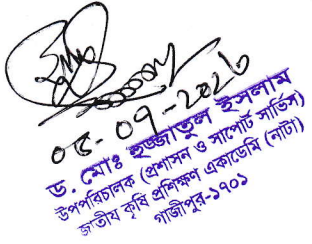 ০৪-০৭-2026
ড. মোঃ হুজ্জাতুল ইসলাম
উপপরিচালক (প্রশাসন ও সাপোর্ট সার্ভিস)
জাতীয় কৃষি প্রশিক্ষণ একাডেমি (নাটা)
গাজীপুর-১৭০১